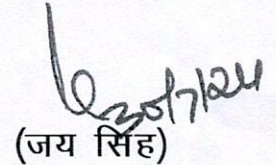 30/7/24
(जय सिंह)